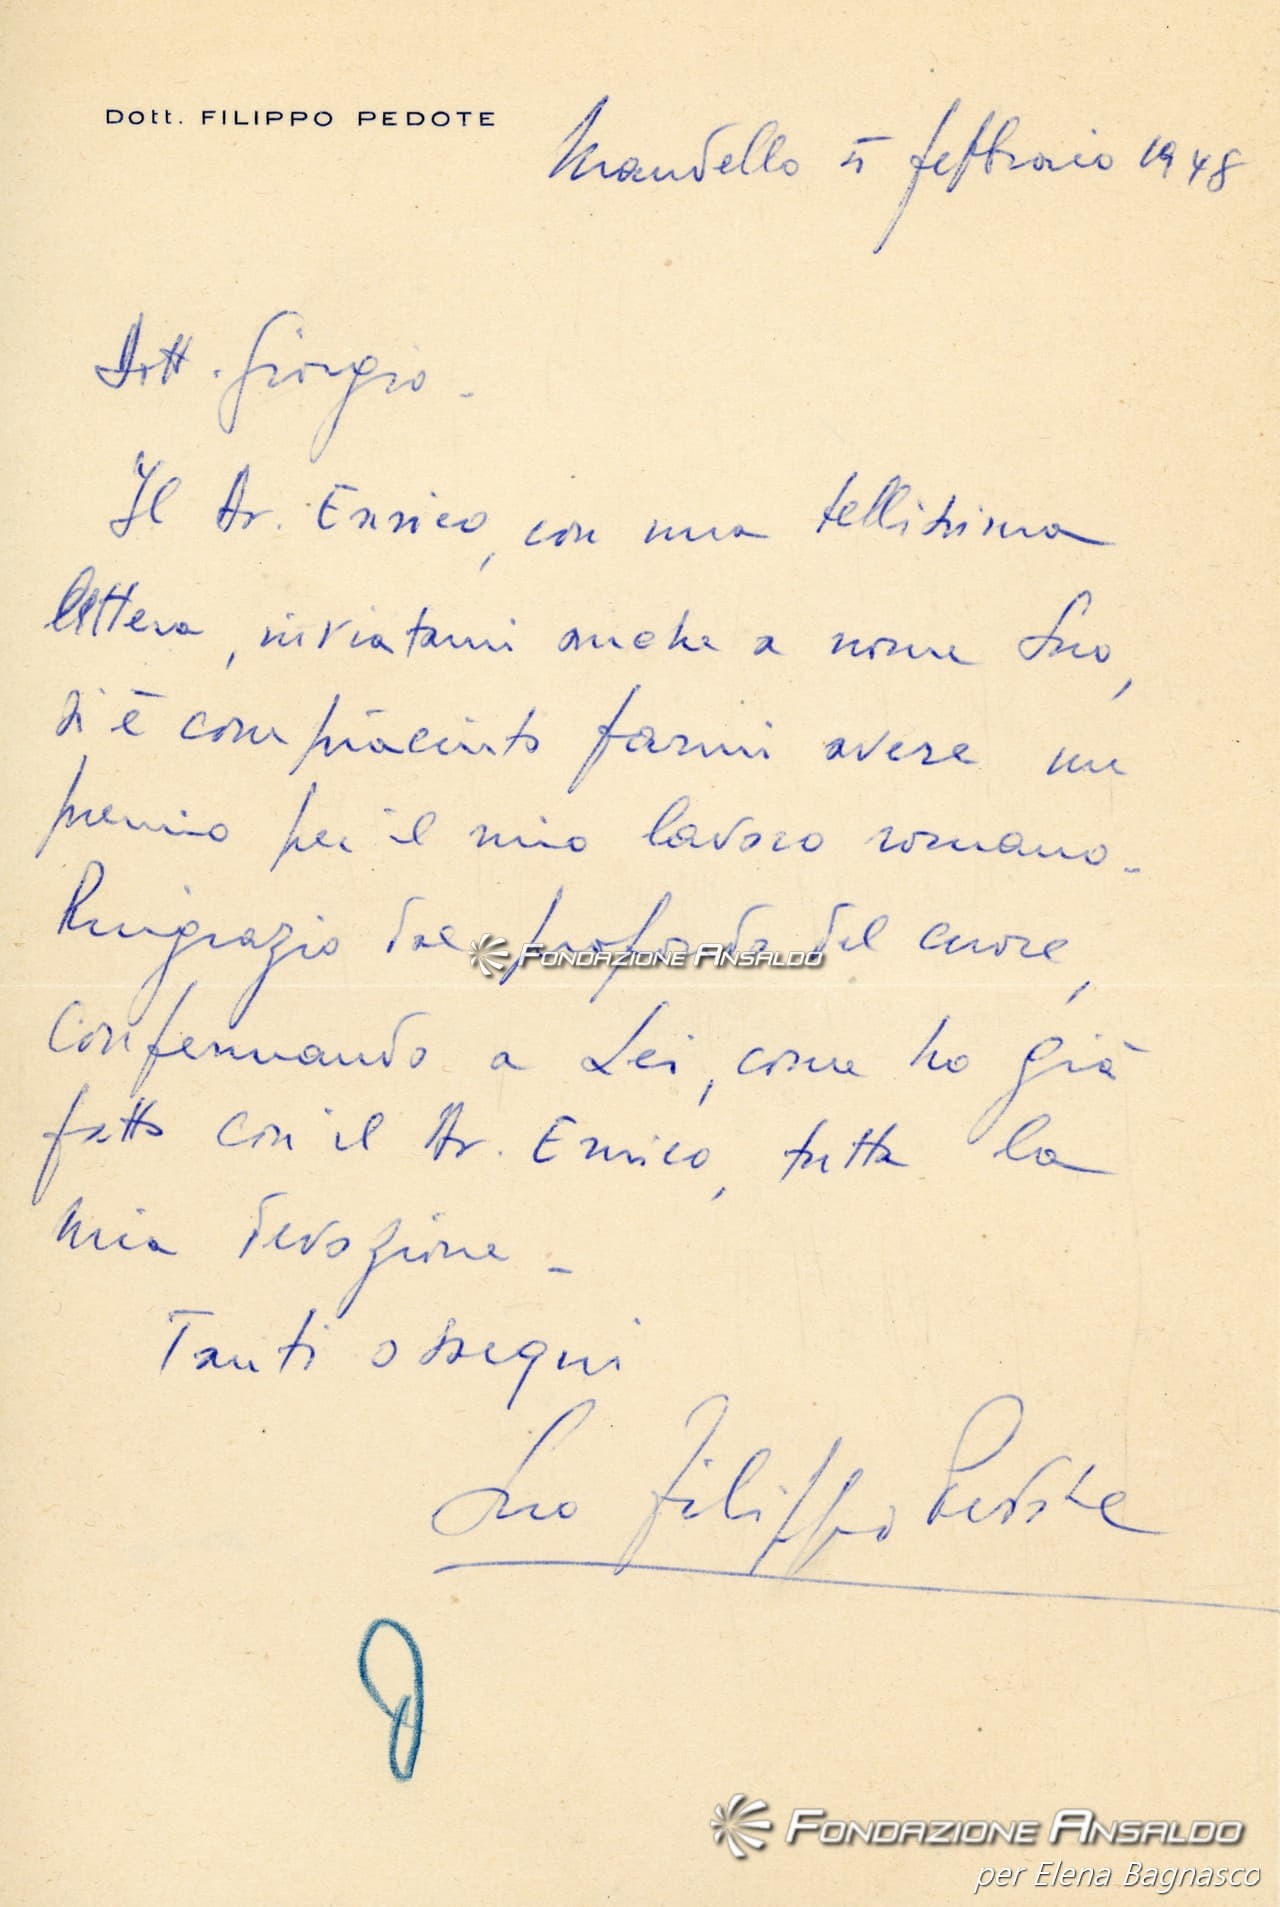 Dott. FILIPPO PEDOTE
Mandello 5 febbraio 1948
Dott. Giorgio -
Il Dr. Enrico, con una bellissima
lettera, inviatami anche a nome Suo,
si è compiaciuto farmi avere un
premio per il mio lavoro romano -
Ringrazio dal profondo del cuore,
FONDAZIONE ANSALDO
confermando a Lei, come ho già
fatto con il Dr. Enrico, tutta la
mia devozione -
Tanti ossequi
Suo Filippo Pedote
FONDAZIONE ANSALDO
per Elena Bagnasco